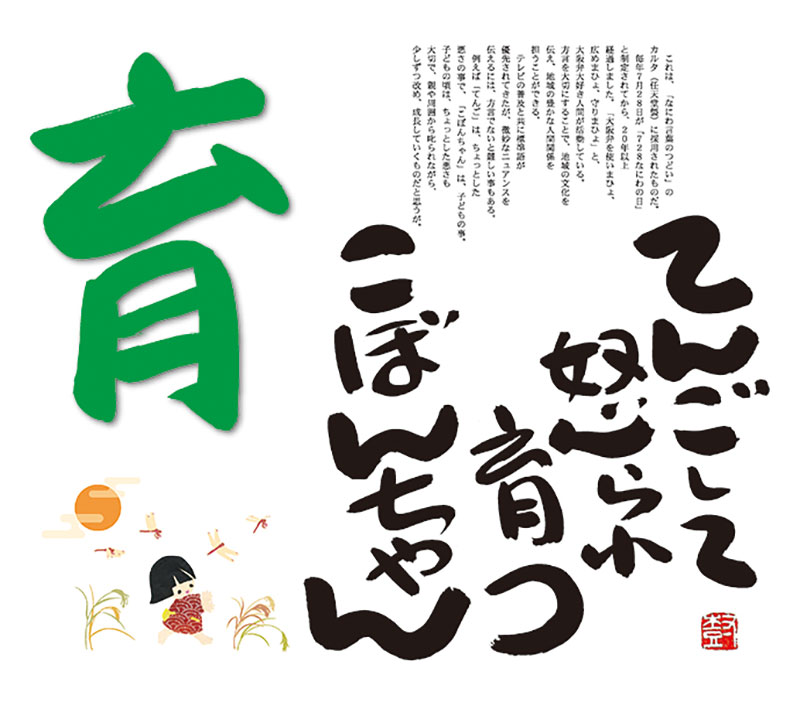 これは、「なにわ言葉のつどい」の
カルタ（任天堂製）に採用されたものだ。
毎年7月28日が「728なにわの日」
と制定されてから、20年以上
経過しました。「大阪弁を使いまひょ、
広めまひょ、守りまひょ」と、
大阪弁大好き人間が活動している。
方言を大切にすることで、地域の文化を
伝え、地域の豊かな人間関係を
担うことができる。
テレビの普及と共に標準語が
優先されてきたが、微妙なニュアンスを
伝えるには、方言でないと難しい事もある。
例えば「てんご」は、ちょっとした
悪さの事で、「こぼんちゃん」は、子どもの事。
子どもの頃は、ちょっとした悪さも
大切で、親や周囲から叱られながら、
少しずつ改め、成長していくものだと思うが。
てんごして
怒られ
育つ
こぼんちゃん
育